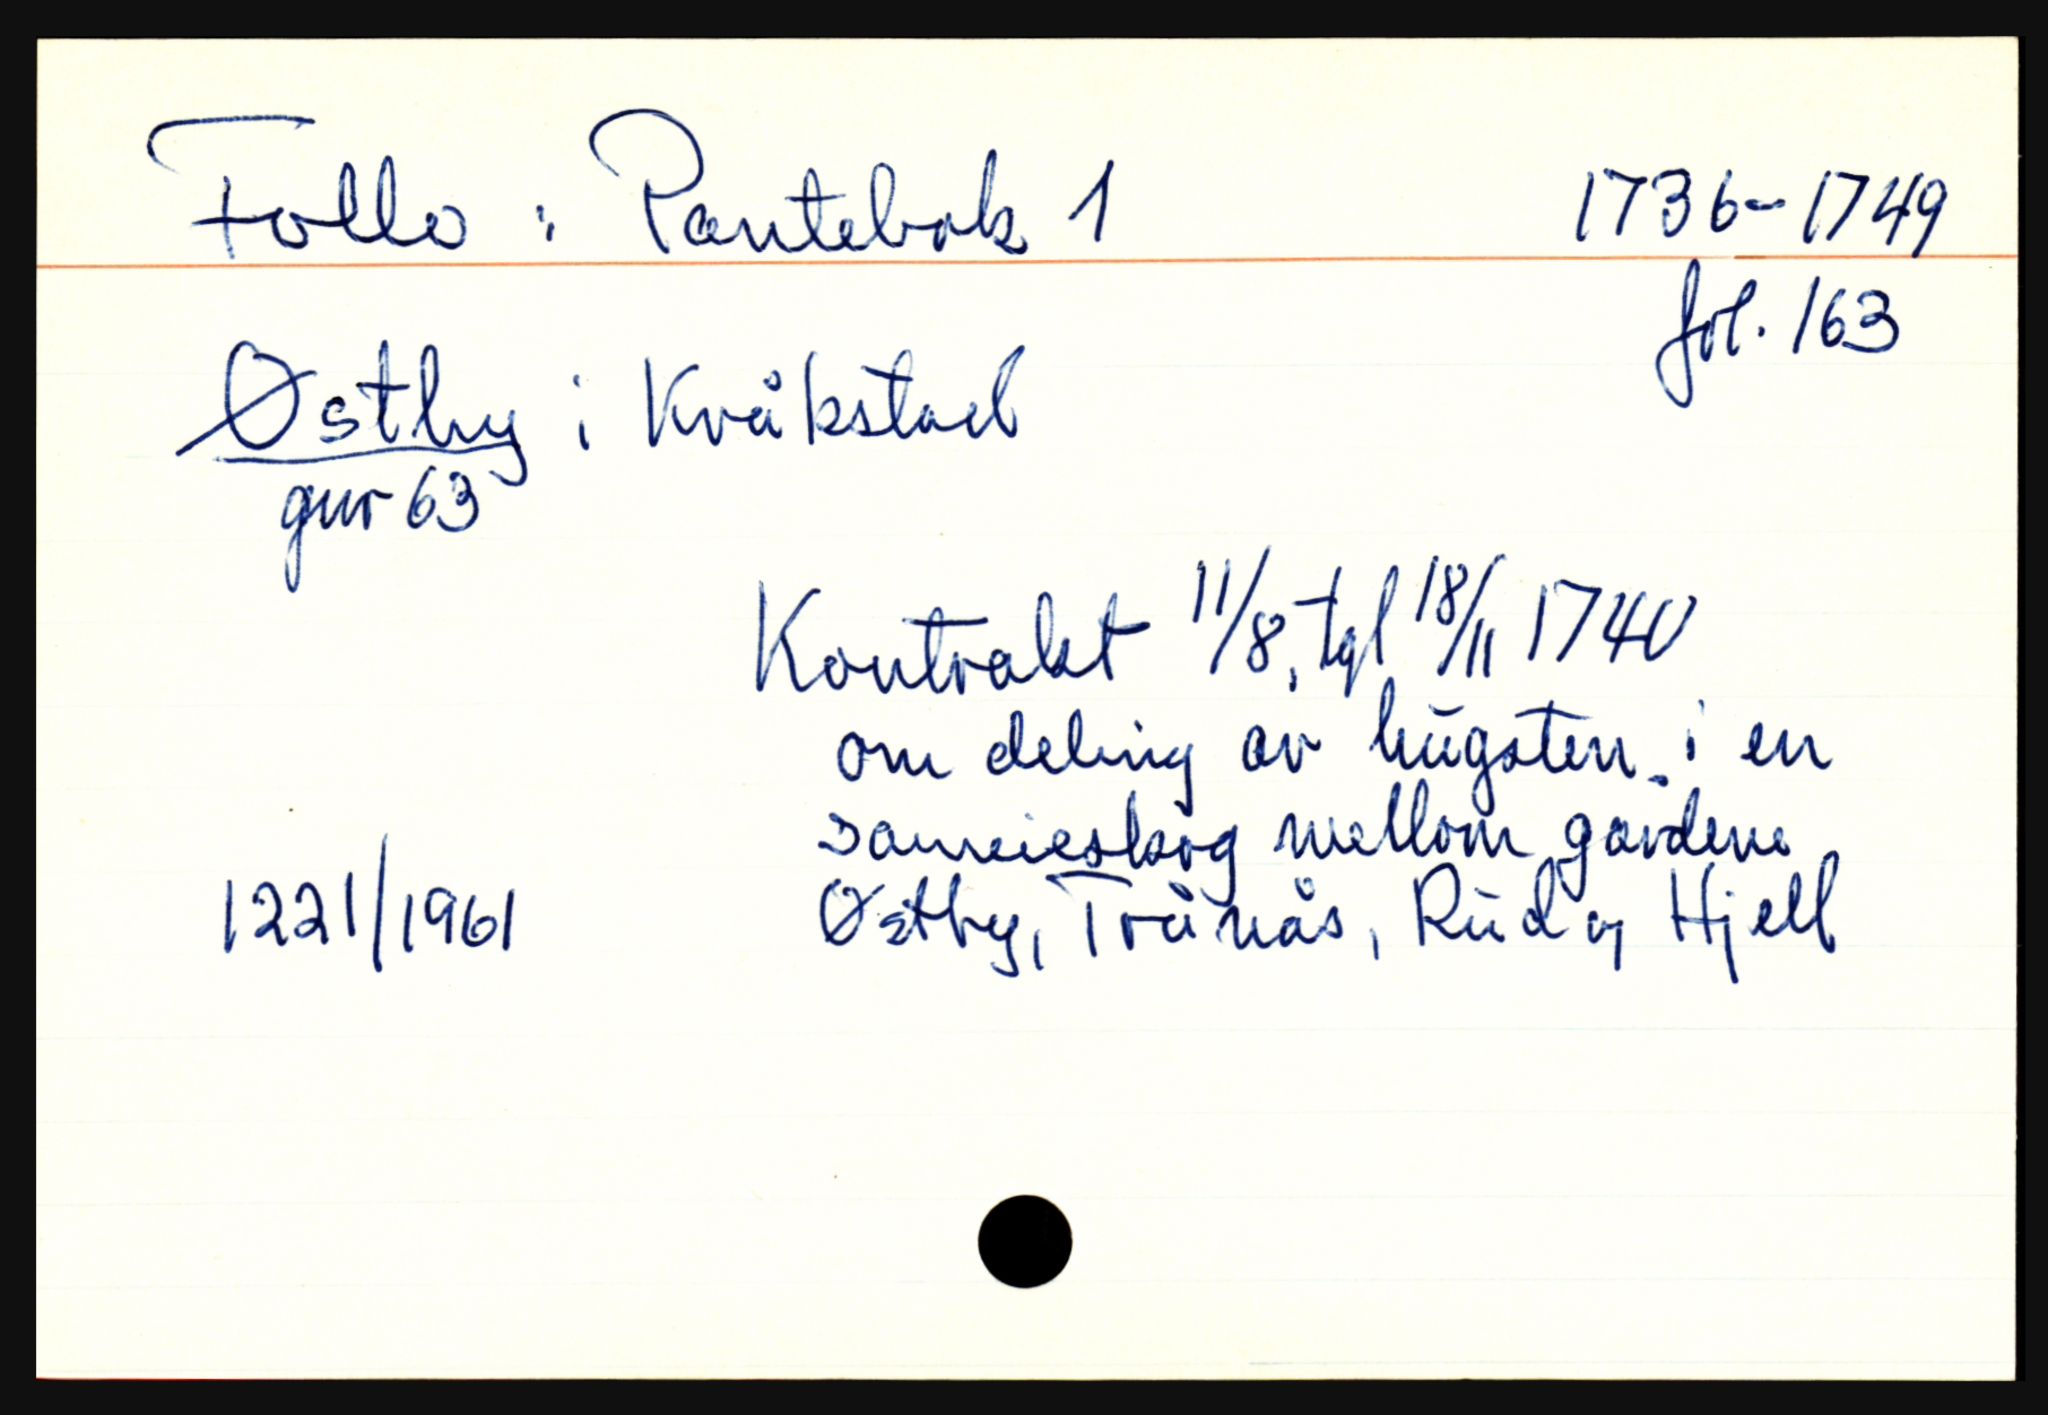 Follo : Pantebok 1 1736-1749
fol. 163
Østby i Kråkstad
gnr 63
Kontrakt 11/8, tgl 18/11 1740
om deling av hugsten i en
sameieskog mellom gardene
1221/1961 Østby, Trånås, Rud og Hjell